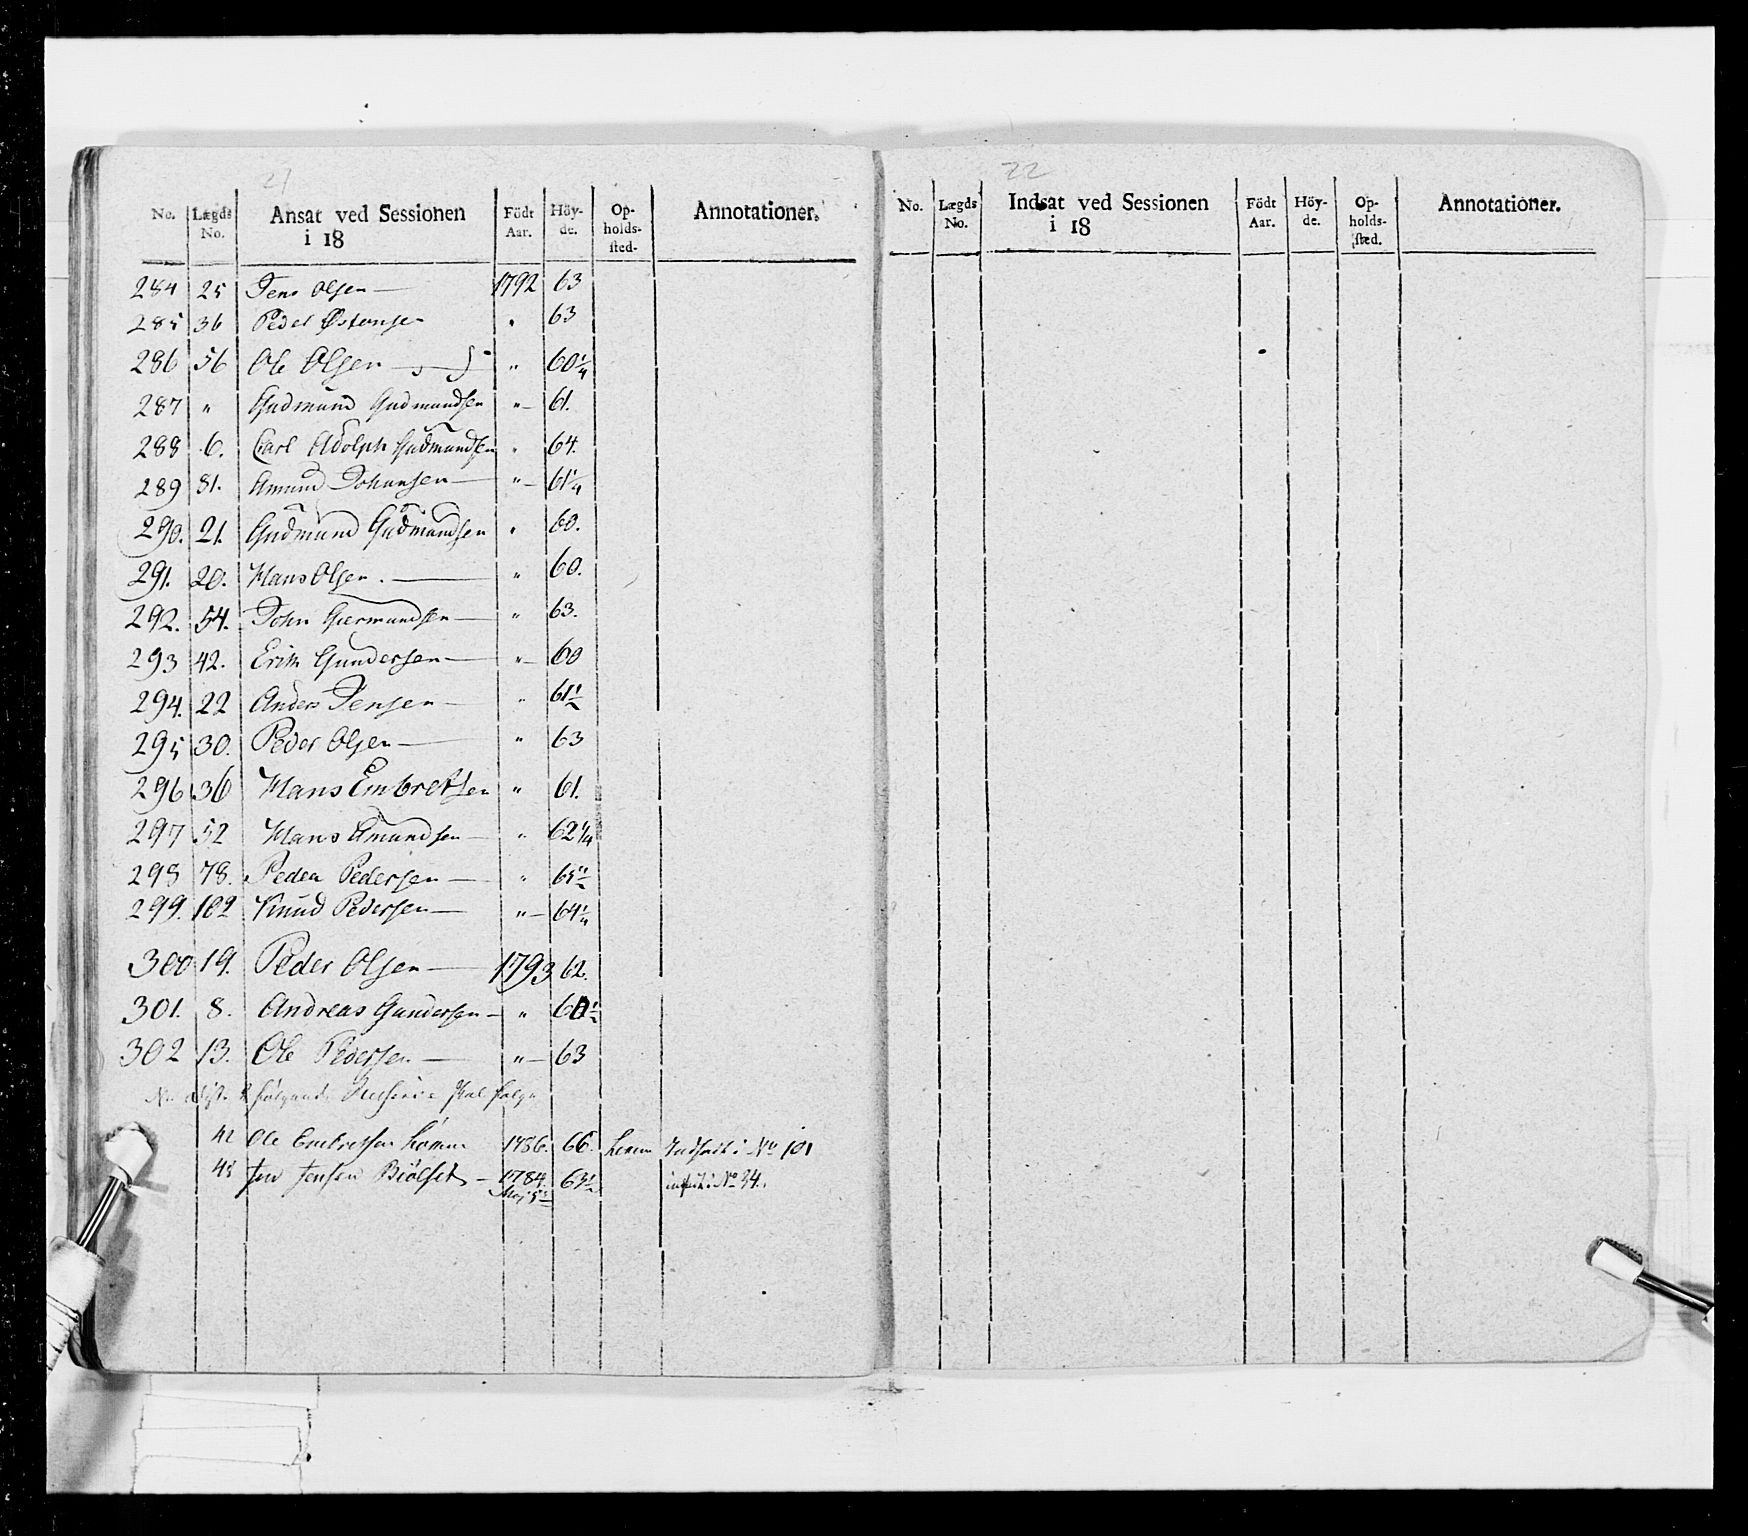 21
No. Lægds No. Ansat ved Sessionen i 18 Födt Aar. Höy-de. Op-holds-sted. Annotationer.
284 25 Jens Olsen — 1792 63
285 36 Peder Østensen " 63
286 56 Ole Olsen — " 60 1/4
287 " Gudmund Gudmundsen " — 61.
288 6. Carl Adolph Gudmundsen " 64.
289 81. Amund Johansen — " — 61 1/4
290. 21. Gudmund Gudmundsen " 60.
291. 20. Hans Olsen. — " 60.
292. 54. John Giermundsen — " 63.
293 42. Erik Gundersen — " — 60
294. 22 Anders Jensen — " 61 1/2
295 30. Peder Olsen — " 63
296 36 Hans Embretsen " 61.
297 52 Hans Amundsen — " 62 1/4
298 78. Peder Pedersen — "
299. 102 Knud Pedersen — " — 64 1/4
300 19. Peder Olsen — 1793 62.
301. 8. Andreas Gundersen — " 60 1/2
302 13. Ole Pedersen — " — 63
42 Ole 1786. 66. Indført i No 101
Jensen — 1784. 63 1/2 i No 34.
22
No. Lægds No. Indsat ved Sessionen i 18 Födt Aar. Höy-de. Op-holds-sted. Annotationer.